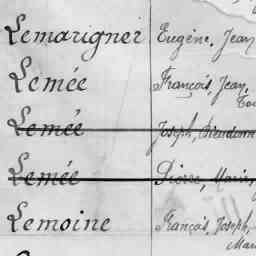 Lemarignier Eugène, Jean
Lemée François, Jean,
Lemée Joseph, Dieudonn
Lemée Pierre, Marie,
Lemoine François, Joseph,
Mari